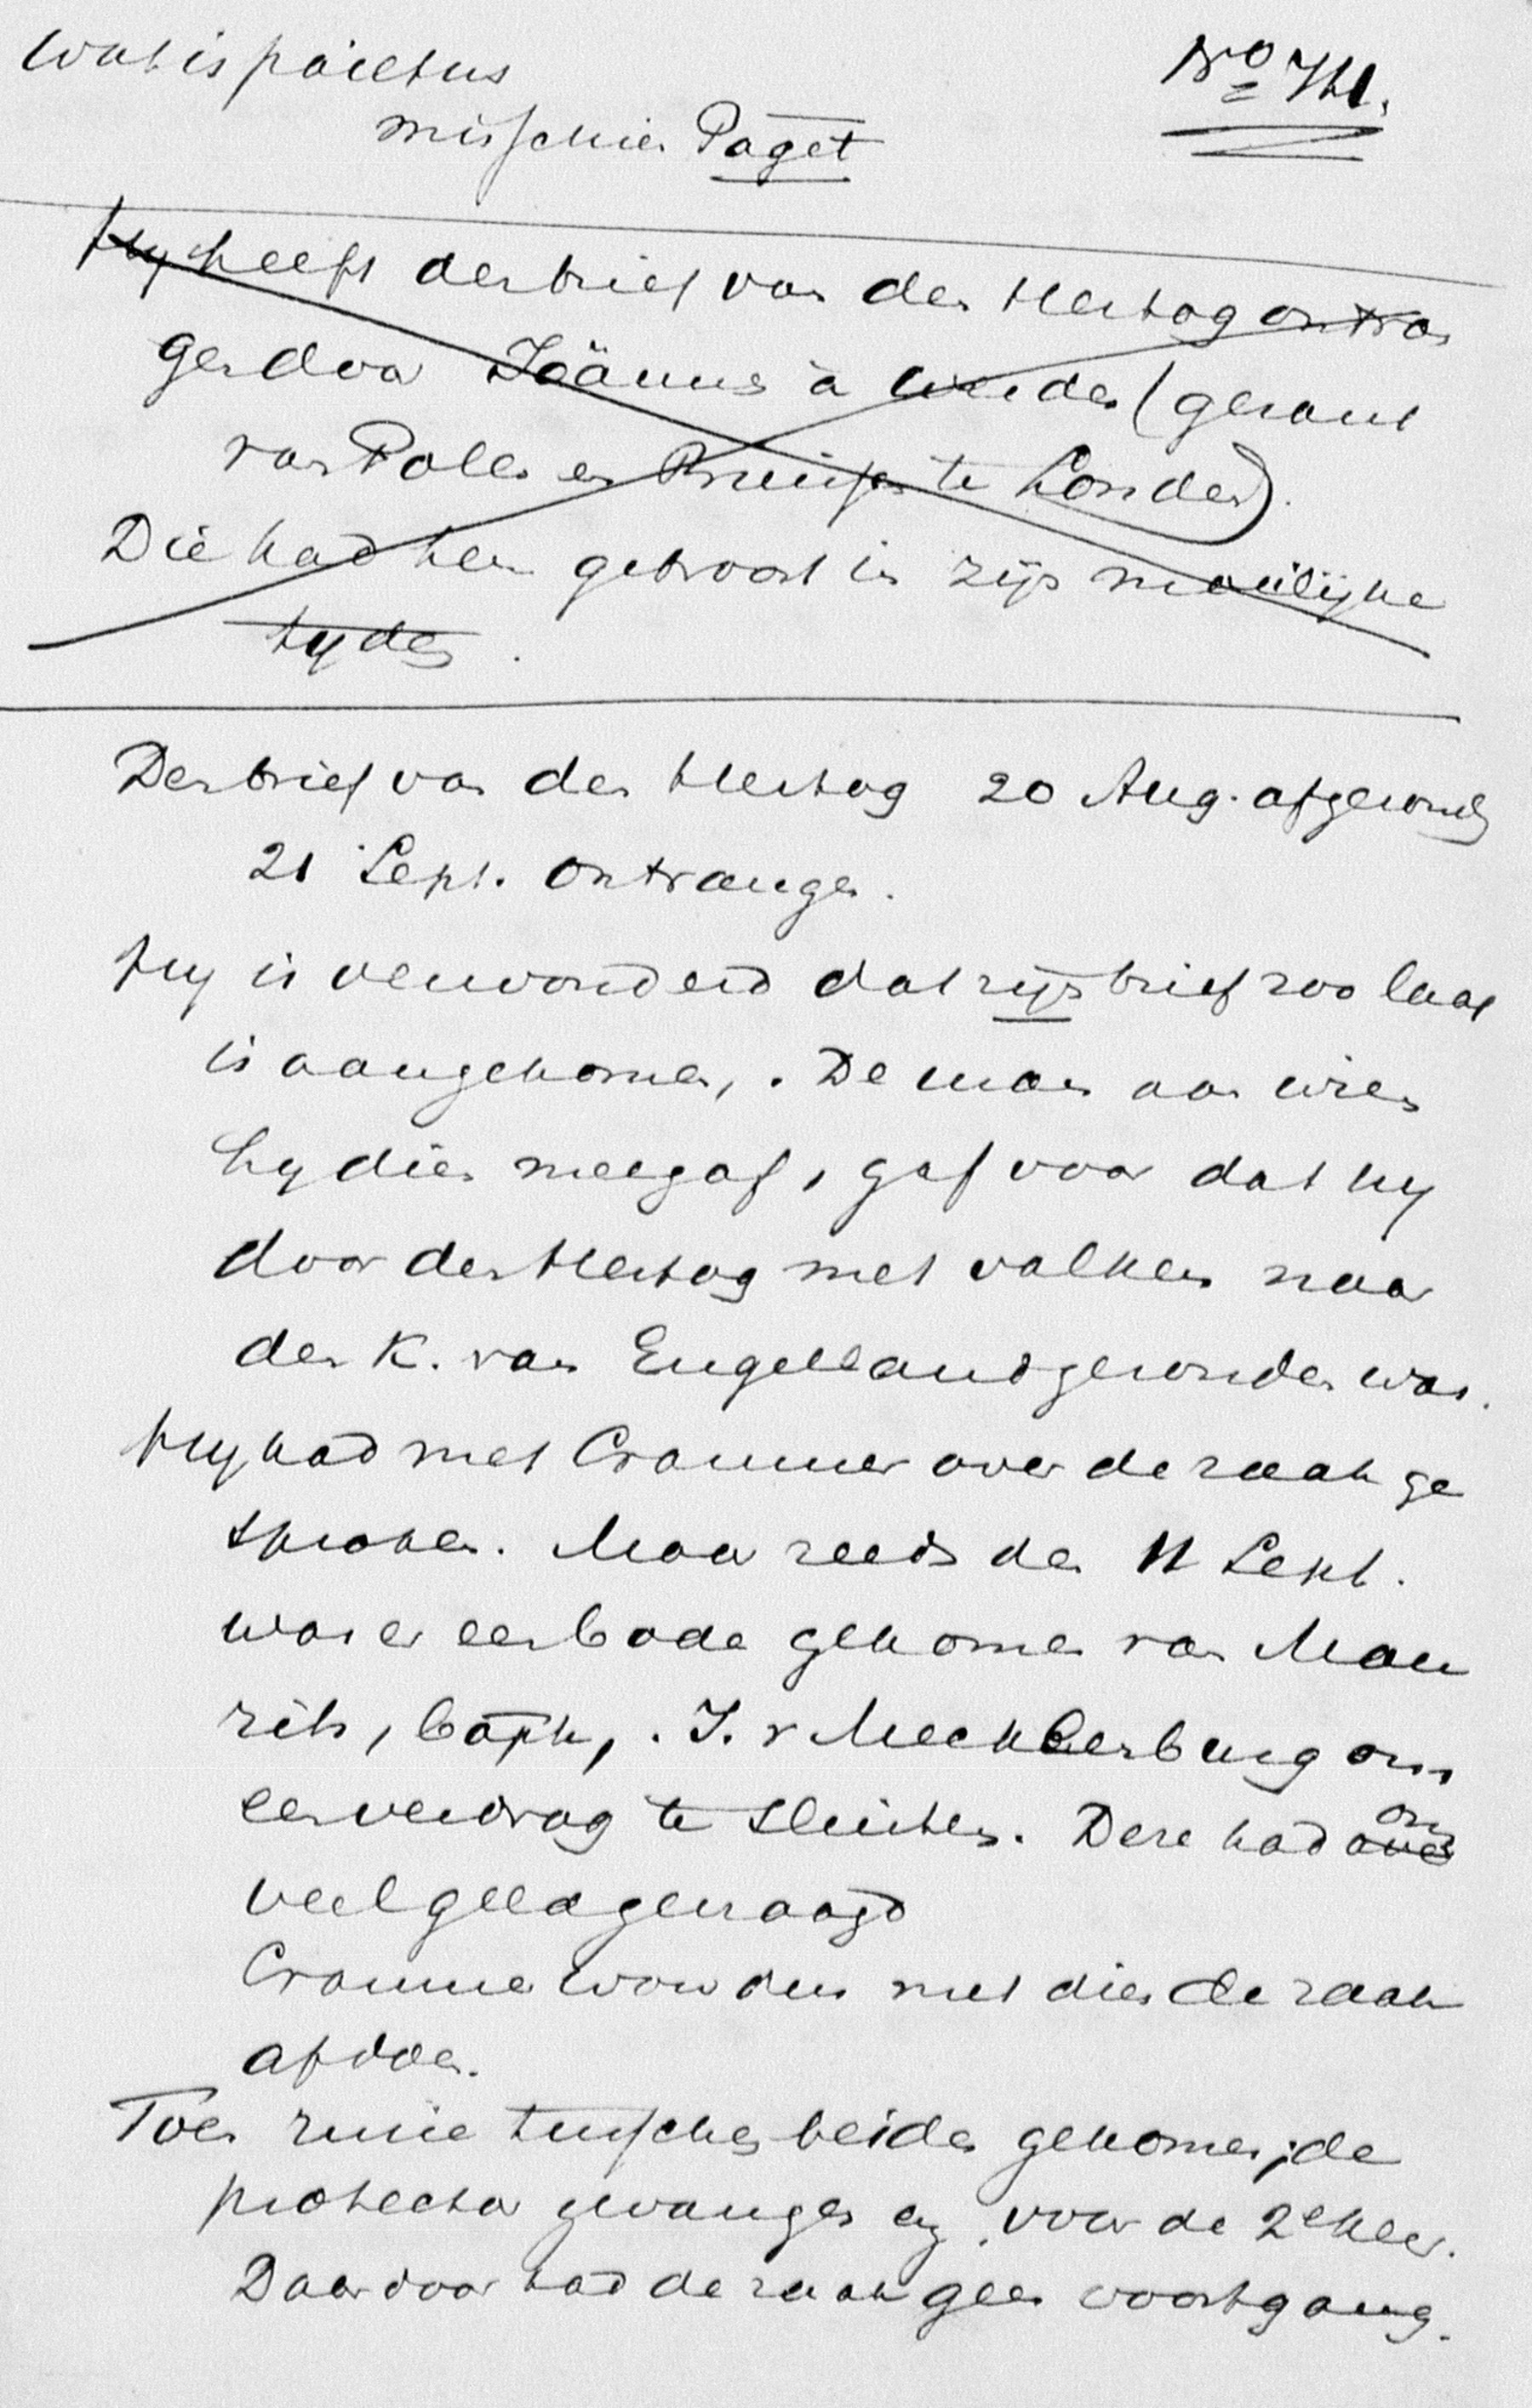 Wat is paictus
No 741.
misschien Paget
Hy heeft den brief van den Hertog ontvan
gen door Joännus à Weiden (gezant
van Polen en Pruisen te Londen).
Die had hem getroost in zijn moeilijke
tyden.
Den brief van den Hertog 20 Aug. afgezonden
21 Sept. ontvangen.
Hy is verwonderd dat zijn brief zoo laat
is aangekomen, . De man aan wien
hy dien meegaf, gaf voor dat hy
door den Hertog met valken naar
den K. van Engelland gezonden was.
Hy had met Cranmer over de zaak ge
sproken. Maar reeds den 11 Sept.
was er een bode gekomen van Mau
rits, . J. v Mecklenburg om
een verdrag te sluiten. Deze had over om
veel geld gevraagd
Cranmer wou dus met dien de zaak
afdoen.
Toen ruzie tusschen beiden gekomen; de
protector gevangen en voor de 2e keer.
Daardoor had de zaak geen voortgang.